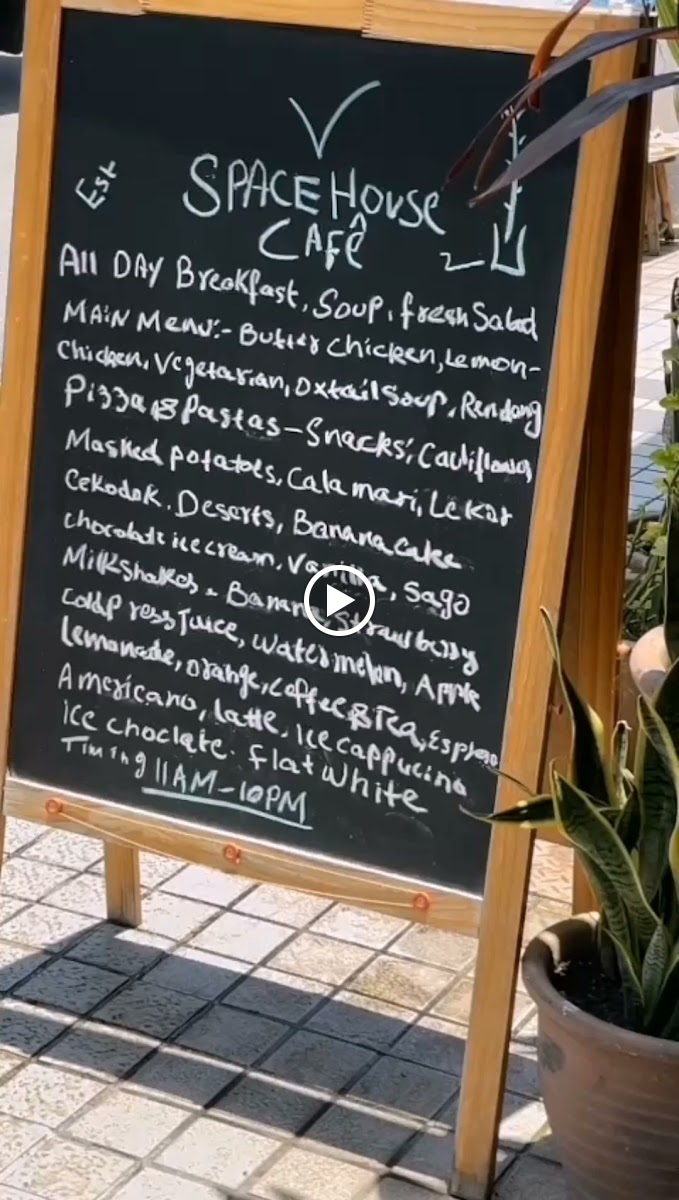 Est
SPACE HOUSE
CAFÉ
All DAY Breakfast, Soup, fresh Salad
MAIN Menu:- Butter chicken, Lemon-
chicken, Vegetarian, Oxtail Soup, Rendang
Pizza & Pastas - Snacks:, Cauliflower,
Mashed potatoes, Calamari, Lekor
Cekodok. Deserts, Banana cake
chocolate ice cream, Vanilla, Sago
Milkshakes - Banana, Strawberry
Cold Press Juice, watermelon, Apple
lemonade, orange, coffee & Tea, Espreso
Americano, latte, Ice cappucina
Ice choclate. flat white
Timing 11AM-10PM